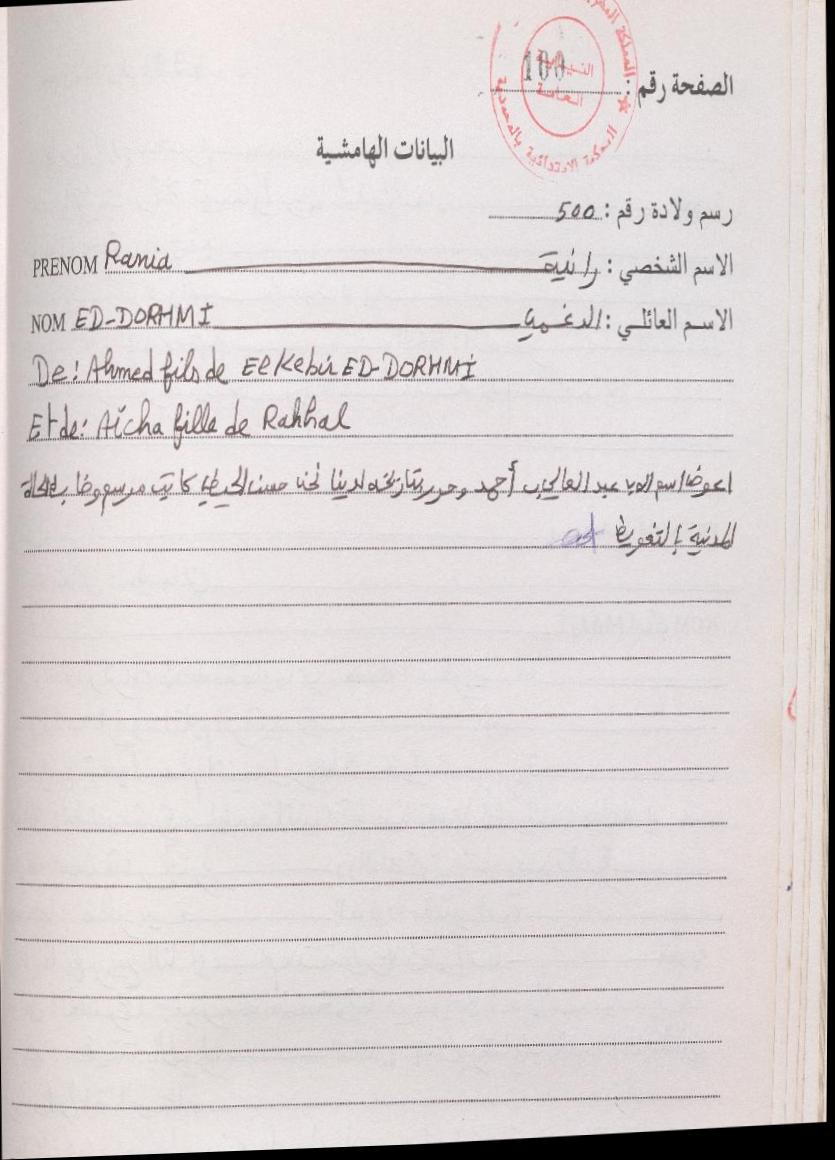 الصفحة رقم : 100
المملكة المغربية
النيابة العامة
المحكمة الابتدائية بالمحمدية
البيانات الهامشية
رسم ولادة رقم : 500
PRENOM Rania رانية الاسم الشخصي :
NOM ED-DORHMI الدغمي الاسم العائلي :
De: Ahmed fils de El Kebir ED-DORHMI
Et de: Aïcha fille de Rahhal
اسم عبد العالي ب أحمد وحرر بتاريخه لدينا نحن حسن كاتب
المدنية بالتفويض